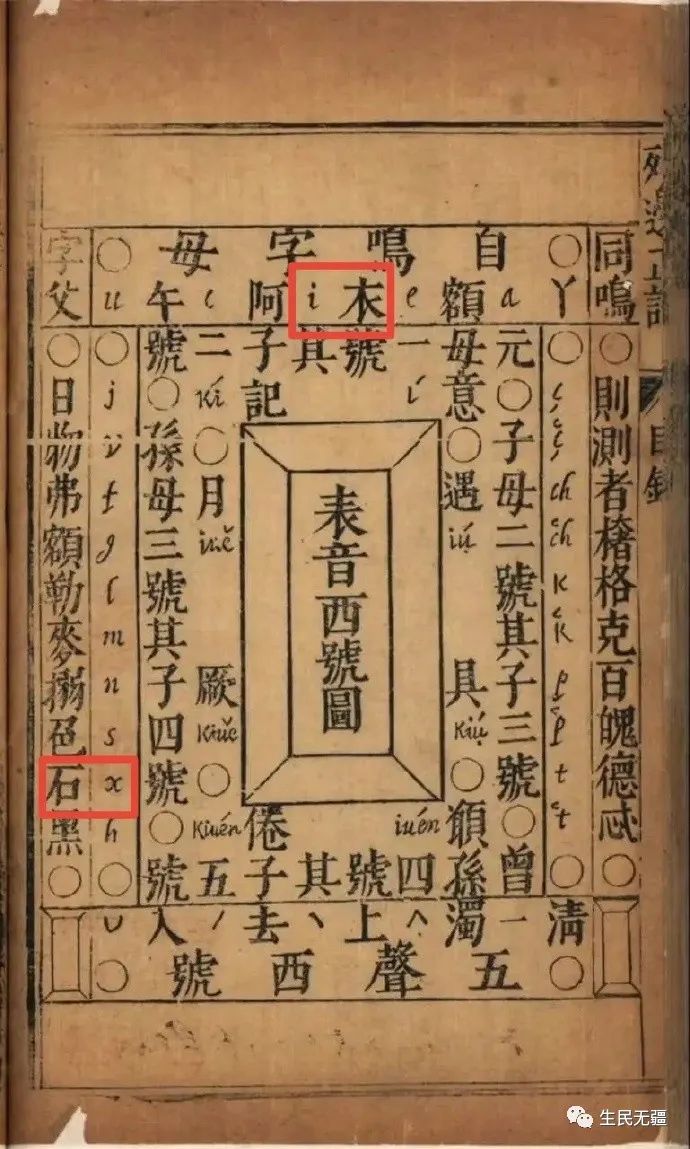 目錄
同鳴○則測者撦格克百魄德忒○
ç ʻç ch ʻch k ʻk p ʻp t ʻt
自鳴字母
○丫 a 額 e 衣 i 阿 o 午 u ○
元母一號其子二號
○意 í 記 kí
○子母二號其子三號
○遇 iú 具 kiú
○孫母三號其子四號
○月 iuĕ 厥 kiuĕ
○曾孫四號其子五號
○願 iuén 倦 kiuén
表音西號圖
字父○日物弗額勒麥搦色石黑○
j v f g l m n s x h
○清 ˉ 濁 ^ 上 ˋ 去 ˊ 入 ˘ ○
五聲西號
生民无疆